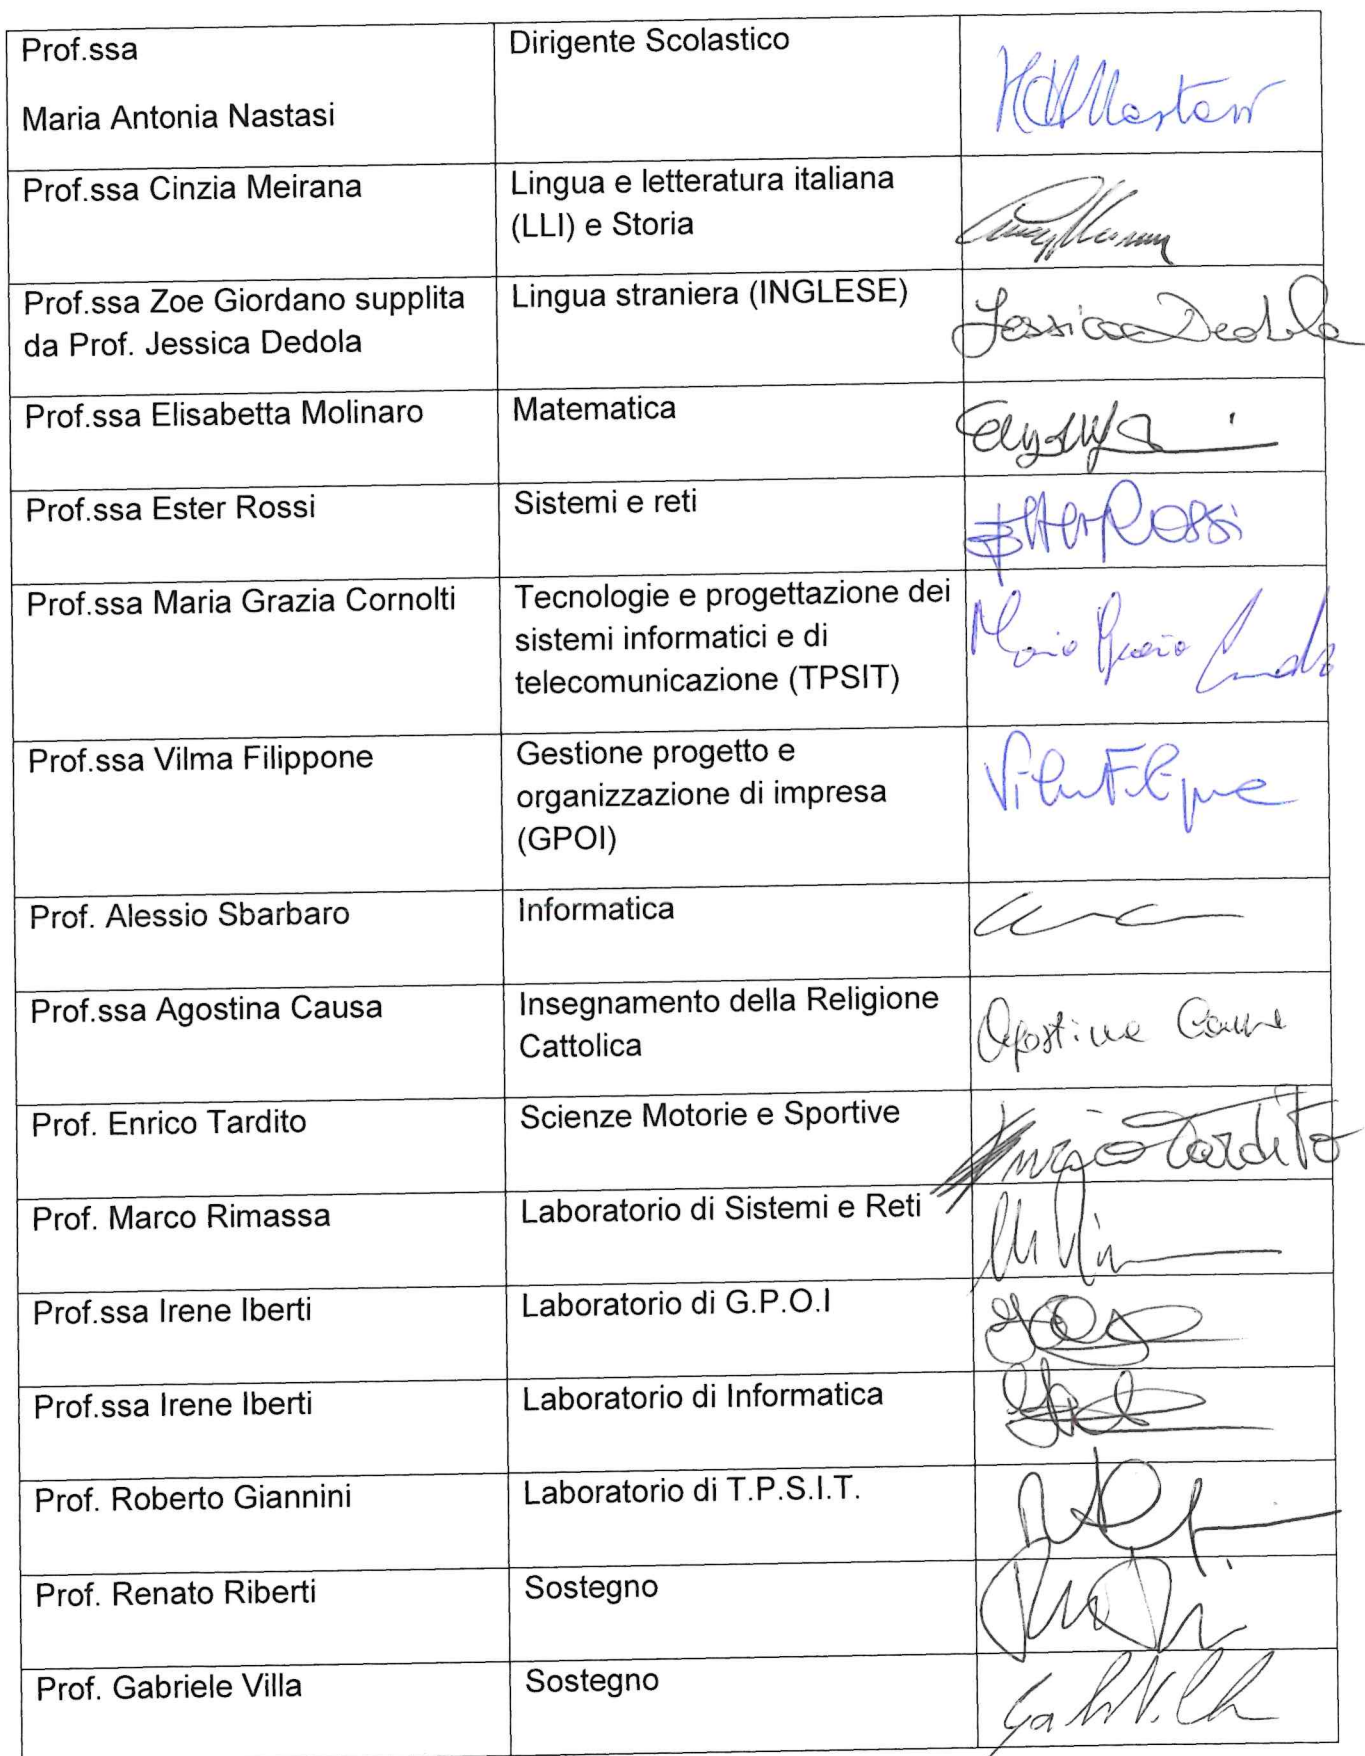 Prof.ssa
Maria Antonia Nastasi
Dirigente Scolastico
Prof.ssa Cinzia Meirana
Lingua e letteratura italiana
(LLI) e Storia
Prof.ssa Zoe Giordano supplita
da Prof. Jessica Dedola
Lingua straniera (INGLESE)
Jessica Dedola
Prof.ssa Elisabetta Molinaro
Matematica
Prof.ssa Ester Rossi
Sistemi e reti
Ester Rossi
Prof.ssa Maria Grazia Cornolti
Tecnologie e progettazione dei
sistemi informatici e di
telecomunicazione (TPSIT)
Maria Grazia
Prof.ssa Vilma Filippone
Gestione progetto e
organizzazione di impresa
(GPOI)
Prof. Alessio Sbarbaro
Informatica
Prof.ssa Agostina Causa
Insegnamento della Religione
Cattolica
Agostina Causa
Prof. Enrico Tardito
Scienze Motorie e Sportive
Enrico Tardito
Prof. Marco Rimassa
Laboratorio di Sistemi e Reti
Prof.ssa Irene Iberti
Laboratorio di G.P.O.I
Prof.ssa Irene Iberti
Laboratorio di Informatica
Prof. Roberto Giannini
Laboratorio di T.P.S.I.T.
Prof. Renato Riberti
Sostegno
Prof. Gabriele Villa
Sostegno